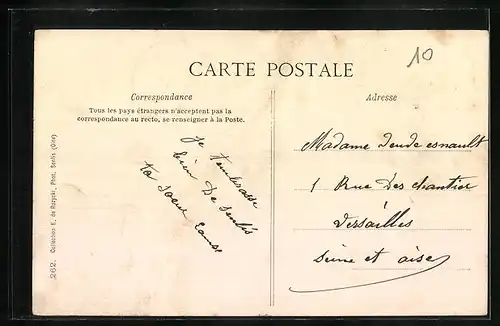 10
CARTE POSTALE
Correspondance
Tous les pays étrangers n'acceptent pas la
correspondance au recto, se renseigner à la Poste.
je t'embrasse
bien De Senlis
ta soeur
Adresse
Madame
1 Rue Des chantier
à
Versailles
Seine et oise
262. Collection E. de Rozycki, Phot. Senlis (Oise)